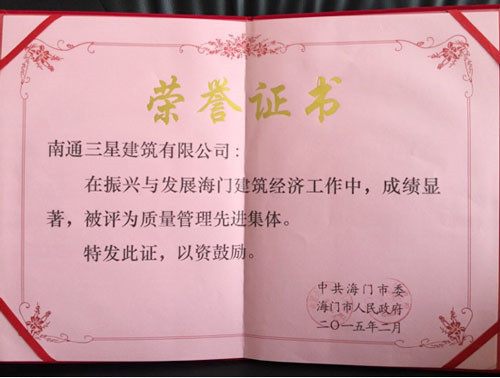 荣誉证书
南通三星建筑有限公司：
在振兴与发展海门建筑经济工作中，成绩显
著，被评为质量管理先进集体。
特发此证，以资鼓励。
中共海门市委
海门市人民政府
二〇一五年二月